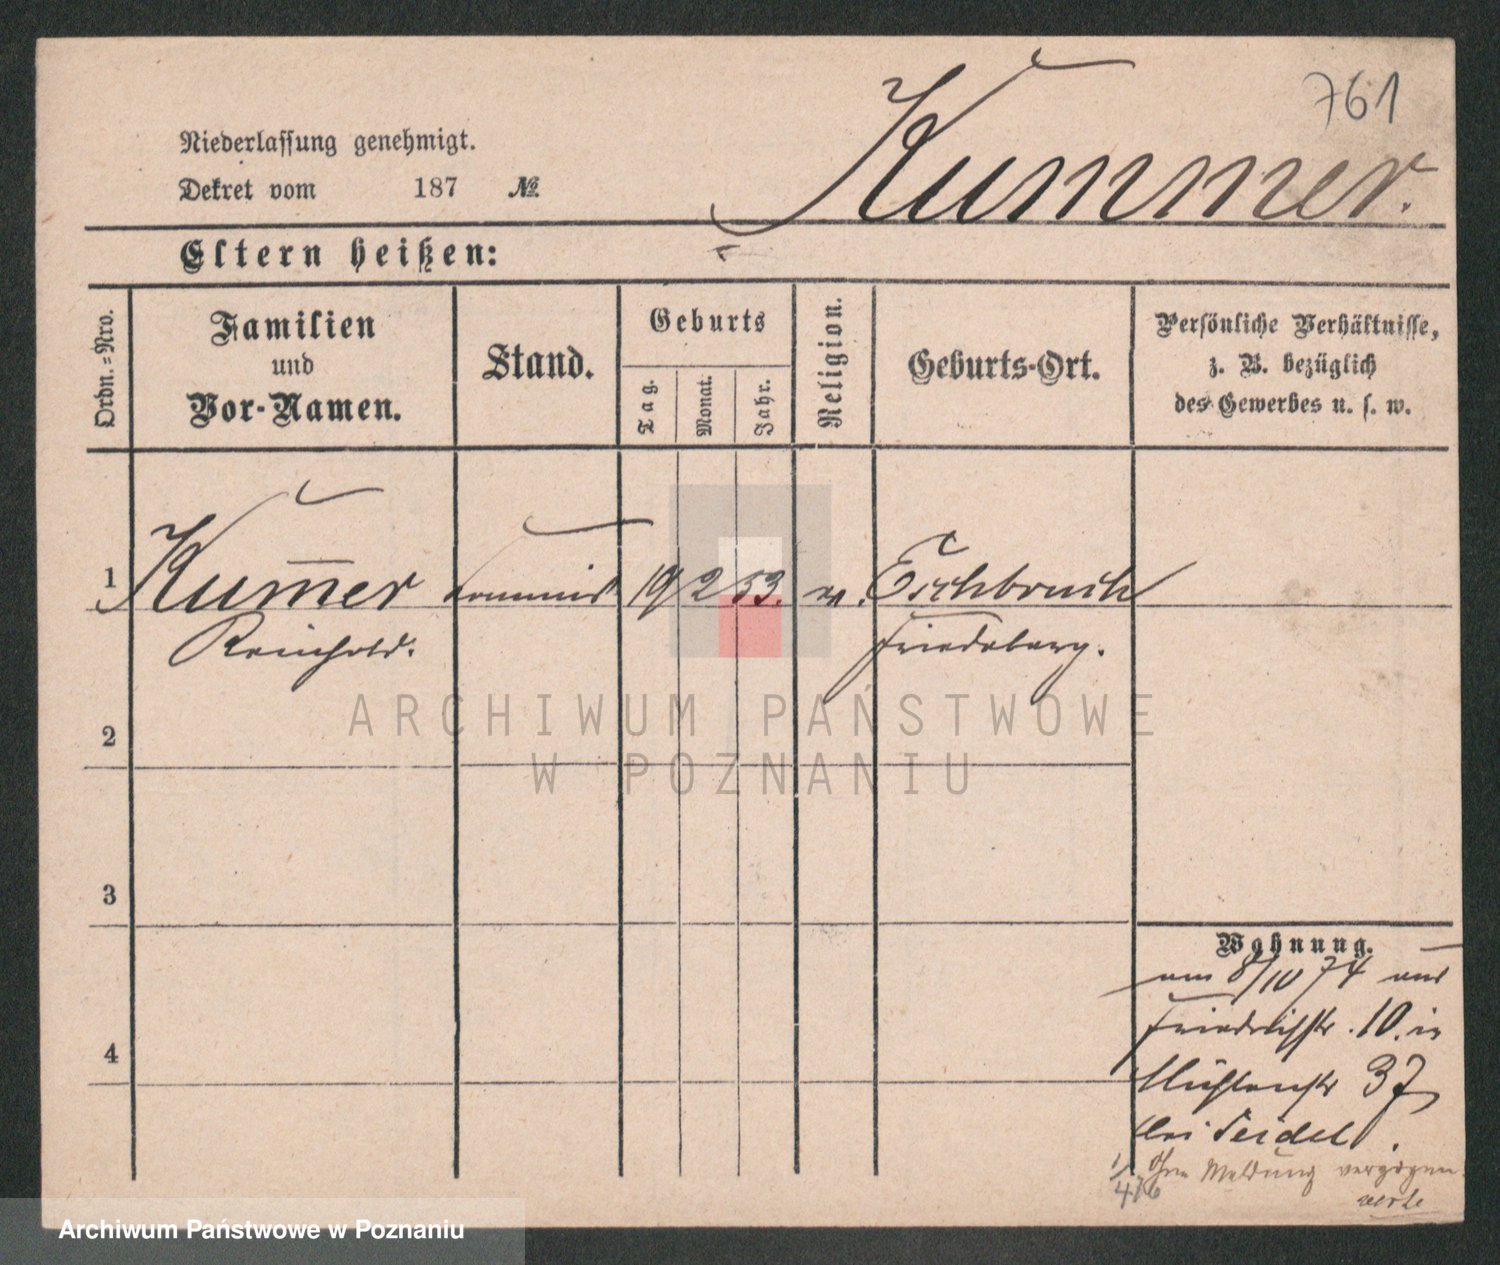 761
Kummer.
Niederlassung genehmigt.
Dekret vom 187 №
Eltern heißen:
Ordn.=Nro.
Familien
und
Vor-Namen.
Stand.
Geburts
Tag.
Monat.
Jahr.
Religion.
Geburts-Ort.
Persönliche Verhältnisse,
z. B. bezüglich
des Gewerbes u. s. w.
1 Kum̅er Kommis 19 2 53. Eschbruch
Reinhold. Friedeberg.
ARCHIWUM PAŃSTWOWE
W POZNANIU
2
3
4
Wohnung.
am 8/10 74 aus
Friedrichstr. 10. in
Mühlenstr 37
bei Seidel.
1/4 76 Ohne Meldung verzogen
Archiwum Państwowe w Poznaniu